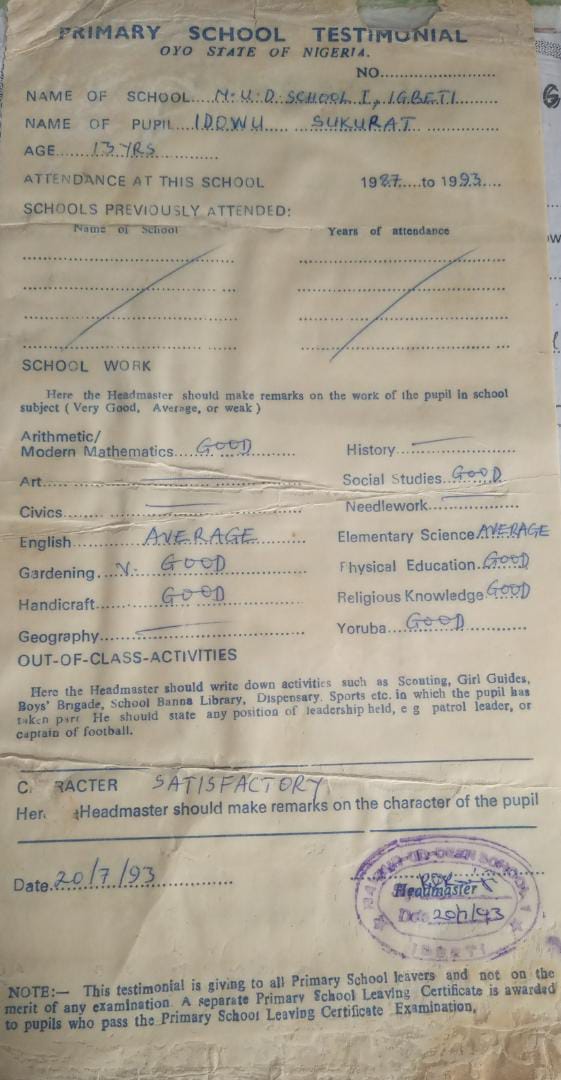 PRIMARY SCHOOL TESTIMONIAL
OYO STATE OF NIGERIA.
NO.
NAME OF SCHOOL N.U.D. SCHOOL I, IGBETI
NAME OF PUPIL IDOWU SUKURAT
AGE 13 YRS
ATTENDANCE AT THIS SCHOOL 1987 to 1993
SCHOOLS PREVIOUSLY ATTENDED:
Name of School Years of attendance
SCHOOL WORK
Here the Headmaster should make remarks on the work of the pupil in school
subject ( Very Good, Average, or weak )
Arithmetic/
Modern Mathematics GOOD History
Art Social Studies GOOD
Civics Needlework
English AVERAGE Elementary Science AVERAGE
Gardening V. GOOD Physical Education GOOD
Handicraft GOOD Religious Knowledge GOOD
Geography Yoruba GOOD
OUT-OF-CLASS-ACTIVITIES
Here the Headmaster should write down activities such as Scouting, Girl Guides,
Boys' Brigade, School Banna Library, Dispensary. Sports etc. in which the pupil has
taken part He should state any position of leadership held, e g patrol leader, or
captain of football.
C RACTER SATISFACTORY
Her Headmaster should make remarks on the character of the pupil
Date 20/7/93
Headmaster
Date 20/7/93
IGBETI
NOTE:— This testimonial is giving to all Primary School leavers and not on the
merit of any examination. A separate Primary School Leaving Certificate is awarded
to pupils who pass the Primary School Leaving Certificate Examination.